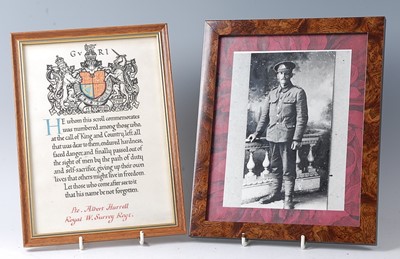 G V R I
HE whom this scroll commemorates
was numbered among those who,
at the call of King and Country, left all
that was dear to them, endured hardness,
faced danger, and finally passed out of
the sight of men by the path of duty
and self-sacrifice, giving up their own
lives that others might live in freedom.
Let those who come after see to it
that his name be not forgotten.
Pte. Albert Harrall
Royal W. Surrey Regt.